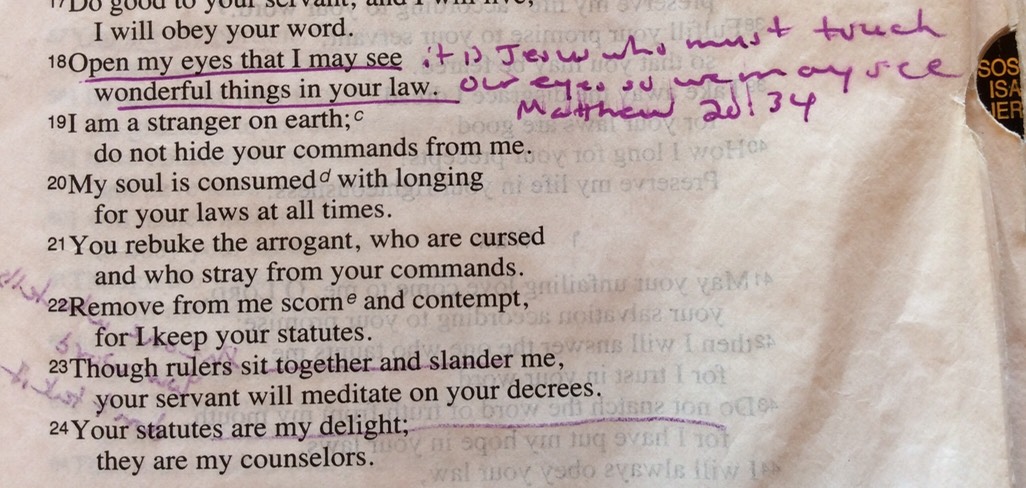 17Do good to your servant, and I will live;
I will obey your word.
18Open my eyes that I may see it is Jesus who must touch
wonderful things in your law. our eyes so we may see
Matthew 20:34
19I am a stranger on earth;c
do not hide your commands from me.
20My soul is consumedd with longing
for your laws at all times.
21You rebuke the arrogant, who are cursed
and who stray from your commands.
22Remove from me scorne and contempt,
for I keep your statutes.
23Though rulers sit together and slander me,
your servant will meditate on your decrees.
24Your statutes are my delight;
they are my counselors.
SOS
ISA
IER